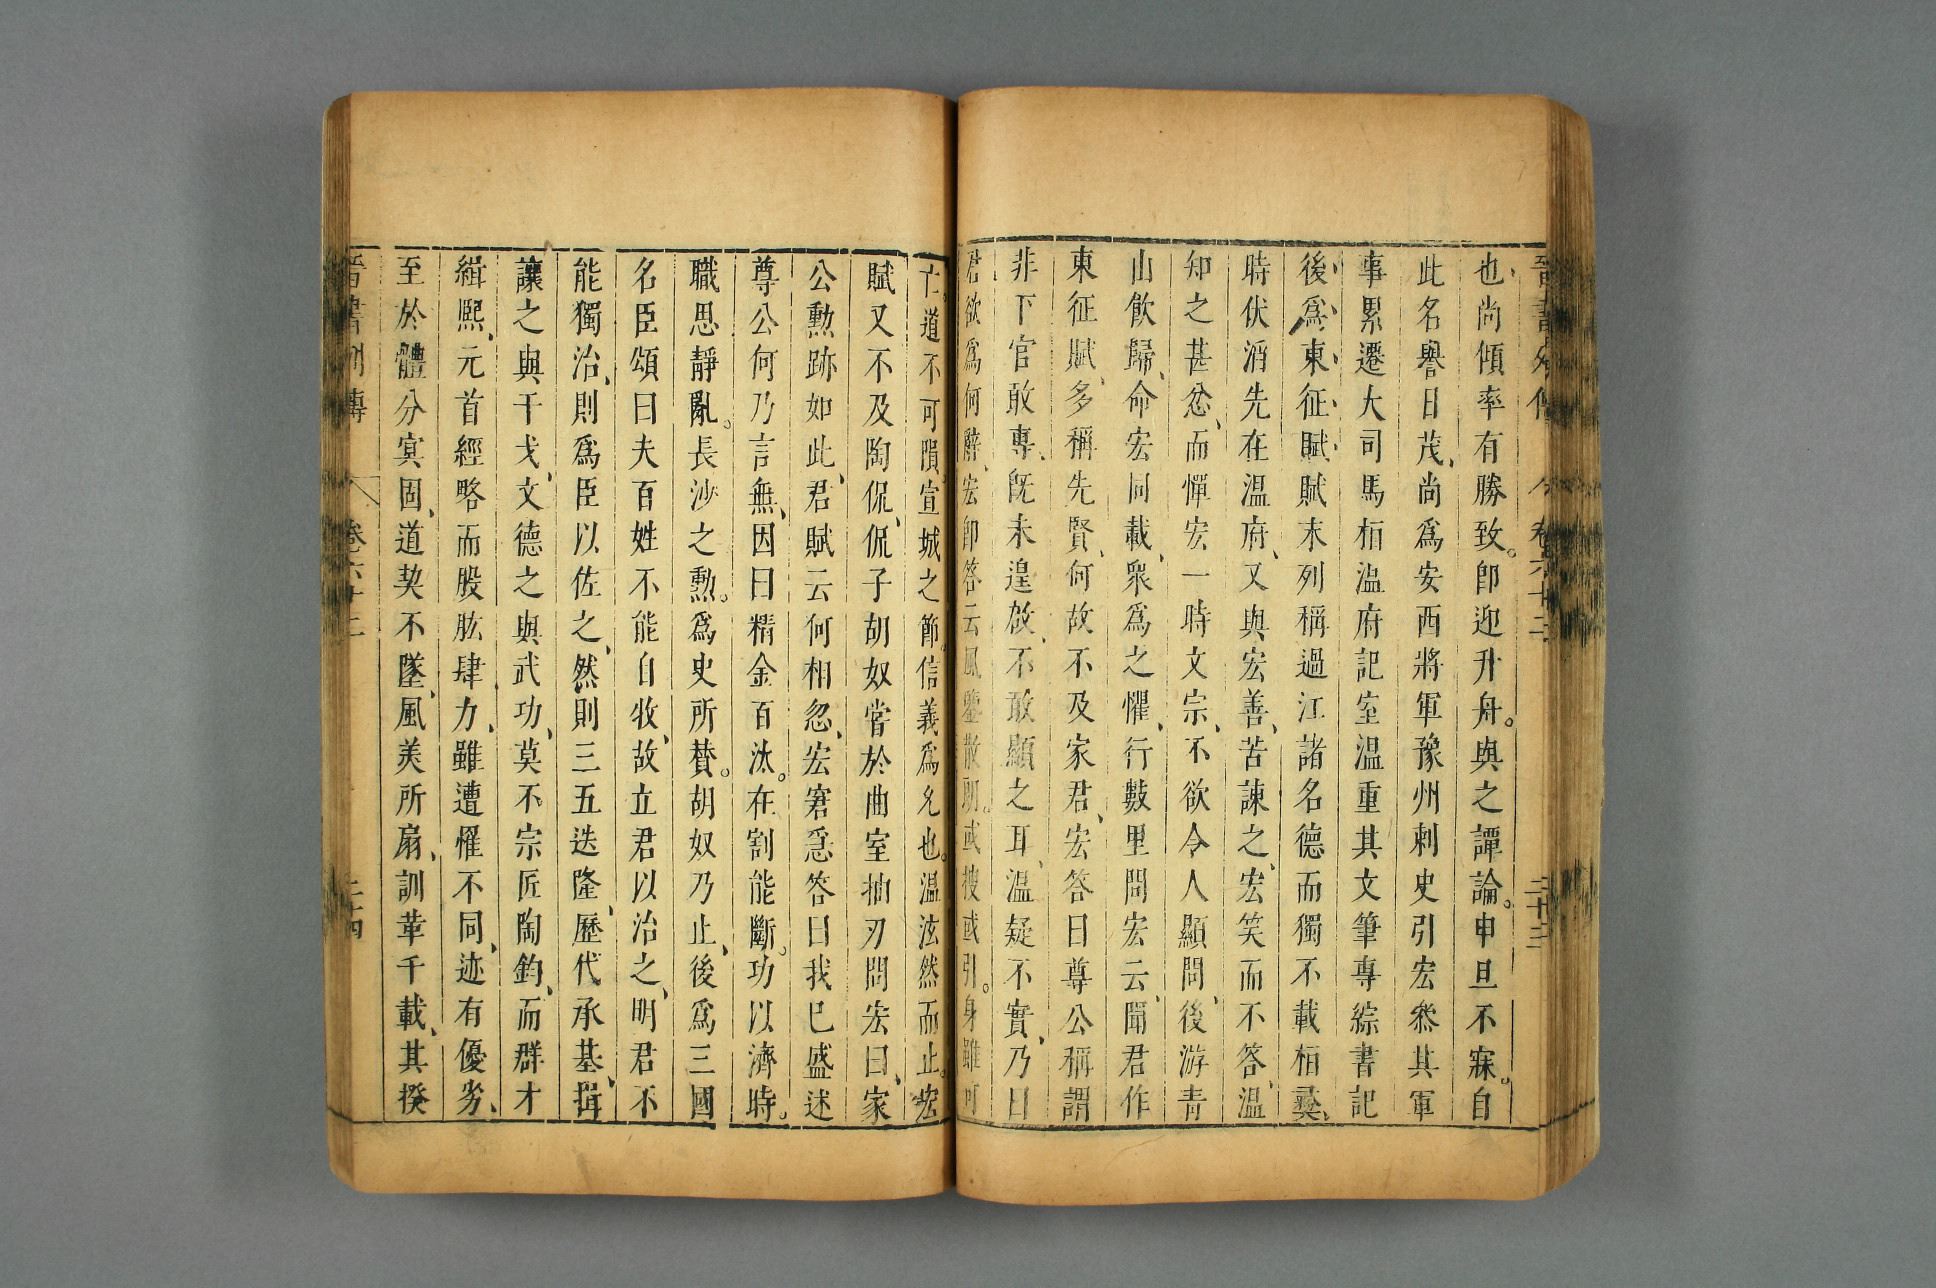 晉書列傳 卷六十二 二十三
也尚傾率有勝致。卽迎升舟。與之譚論。申旦不寐。自
此名譽日茂、尚爲安西將軍豫州刺史引宏叅其軍
事累遷大司馬桓溫府記室溫重其文筆專綜書記
後爲東征賦賦末列稱過江諸名德而獨不載桓彝、
時伏滔先在溫府、又與宏善、苦諫之、宏笑而不答、溫
知之甚忿、而憚宏一時文宗、不欲令人顯問、後游青
山飮歸、命宏同載、衆爲之懼、行數里問宏云、聞君作
東征賦、多稱先賢、何故不及家君、宏答曰尊公稱謂
非下官敢專、旣未遑啟、不敢顯之耳、溫疑不實、乃曰
君欲爲何辭、宏卽答云風鑒散朗。或搜或引。身雖可
亡。道不可隕。宣城之節。信義爲允也。溫泫然而止。宏
賦又不及陶侃、侃子胡奴嘗於曲室抽刃問宏曰、家
公勳跡如此、君賦云何相忽、宏窘急答曰我已盛述
尊公何乃言無、因曰精金百汰。在割能斷。功以濟時。
職思靜亂。長沙之勳。爲史所贊。胡奴乃止、後爲三國
名臣頌曰夫百姓不能自牧、故立君以治之、明君不
能獨治、則爲臣以佐之、然則三五迭隆、歷代承基、揖
讓之與干戈、文德之與武功、莫不宗匠陶鈞、而群才
緝熙、元首經略而股肱肆力、雖遭罹不同、迹有優劣、
至於體分寞固、道契不墜、風美所扇、訓革千載、其揆
晉書列傳 卷六十二 二十四